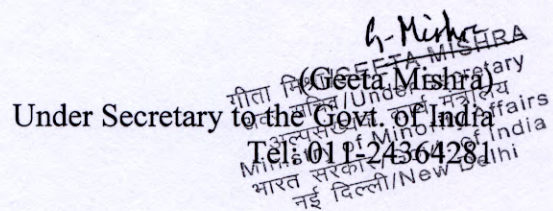 G-Mishra
(Geeta Mishra)
Under Secretary to the Govt. of India
Tel: 011-24364281
गीता मिश्रा/GEETA MISHRA
अवर सचिव/Under Secretary
अल्पसंख्यक कार्य मंत्रालय
Ministry of Minority Affairs
भारत सरकार/Govt. of India
नई दिल्ली/New Delhi